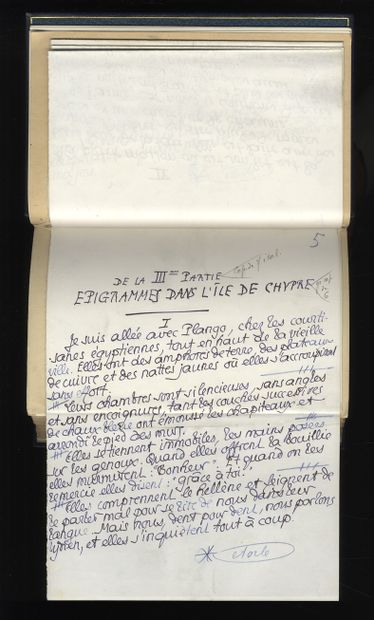 5
DE LA IIIme PARTIE
EPIGRAMMES DANS L'ÎLE DE CHYPRE
I
Je suis allée avec Plango, chez les courti-
sanes égyptiennes, tout en haut de la vieille
ville. Elles ont des amphores de terre, des plateaux
de cuivre et des nattes jaunes où elles s'accroupissent
sans effort.
Leurs chambres sont silencieuses, sans angles
et sans encoignures, tant les couches successives
de chaux bleue ont émoussé les chapiteaux et
arrondi le pied des murs.
Elles se tiennent immobiles, les mains posées
sur les genoux. Quand elles offrent la bouillie
elles murmurent: "Bonheur". Et quand on les
remercie elles disent: "grâce à toi".
Elles comprennent le hellène et feignent de
le parler mal pour se rire de nous dans leur
langue. Mais nous, dent pour dent, nous parlons
lydien, et elles s'inquiètent tout à coup.
* étoile